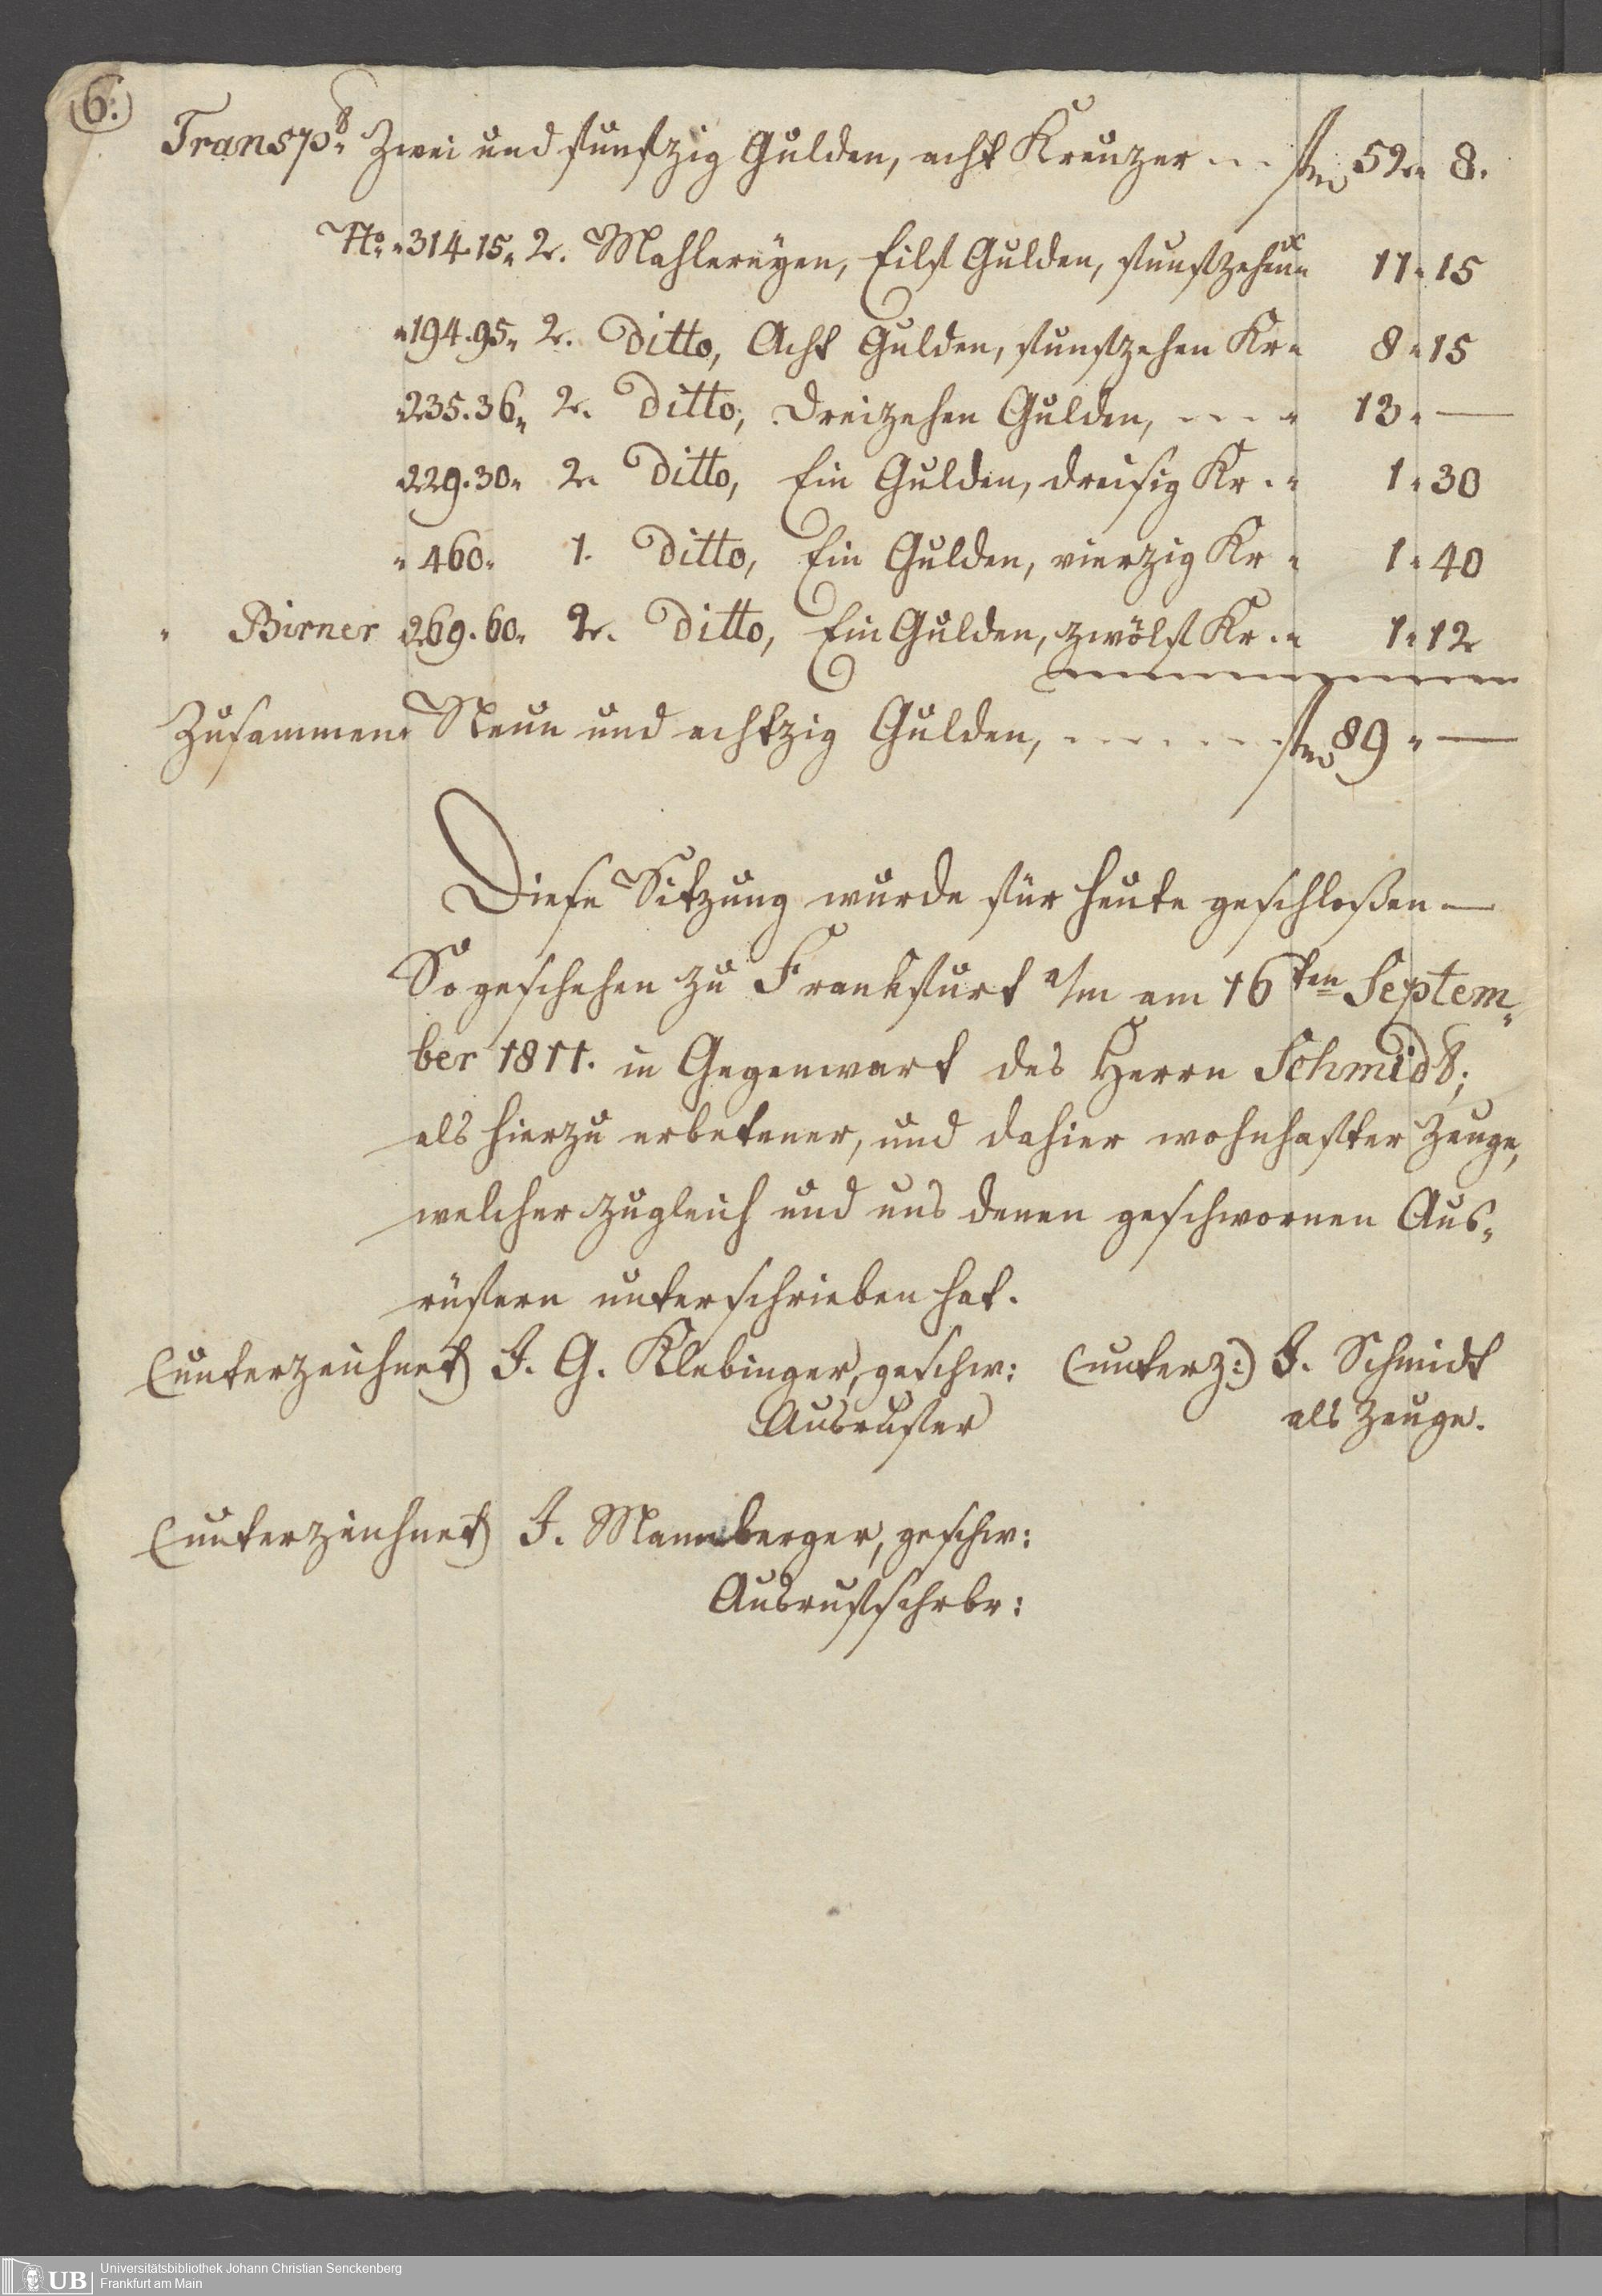 6.
Transpt Zwei und funfzig Gulden, acht Kreuzer . . . fl 52 " 8.
No " 314.15 " 2. Mahlereyen, Eilf Gulden, funfzehn x " 11 " 15
" 194.95 " 2. Ditto, Acht Gulden, funfzehen Kr " 8 " 15
" 235.36 " 2. Ditto, Dreizehen Gulden, . . . . " 13 " —
" 229.30 " 2. Ditto, Ein Gulden, dreisig Kr . " 1 " 30
" 460 " 1. Ditto, Ein Gulden, vierzig Kr " 1 " 40
" Birner 269.60 " 2. Ditto, Ein Gulden, zwölf Kr . " 1 " 12
Zusammen Neun und achtzig Gulden, . . . . . . . fl 89 " —
Diese Sitzung wurde für heute geschloßen —
So geschehen zu Frankfurt a/m am 16ten Septem„
ber 1811. in Gegenwart des Herrn Schmidt;
als hierzu erbetener, und dahier wohnhafter Zeuge,
welcher zugleich und uns denen geschwornen Aus„
rüfern unterschrieben hat.
(unterzeichnet) J. G. Klebinger, geschw: (unterz:) J. Schmidt
Ausrufer als Zeuge.
(unterzeichnet) J. Mannberger, geschw:
Ausrufschrbr:
UB Universitätsbibliothek Johann Christian Senckenberg
Frankfurt am Main